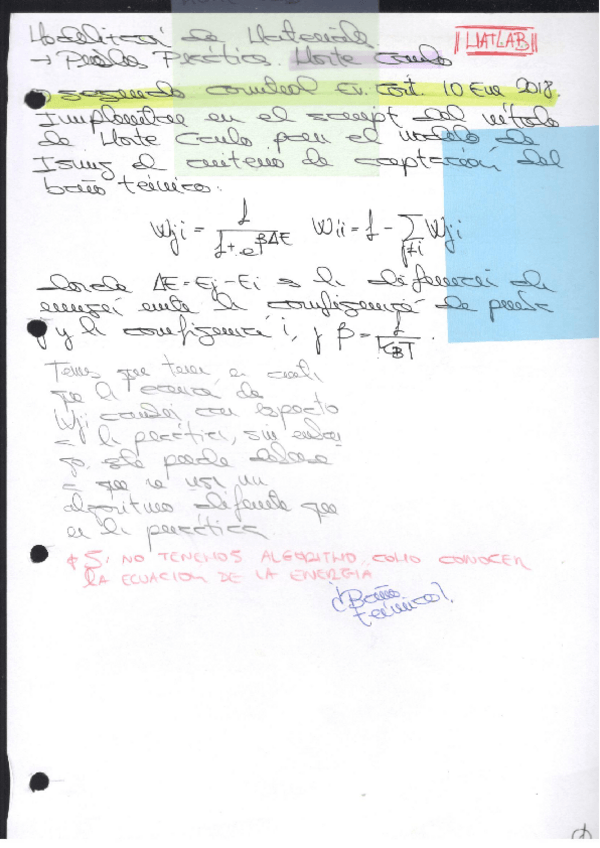 Modelización de Materiales
MATLAB
→ Prueba Práctica. Monte Carlo
segundo control Ev. Cont. 10 Ene 2018.
Implementar en el script del método
de Monte Carlo para el modelo de
Ising el criterio de aceptación del
baño térmico:
Wji = 1 / (1 + e^βΔE) Wii = 1 - Σ j≠i Wji
donde ΔE = Ej - Ei es la diferencia de
energía entre la configuración de prueba
j y la configuración i, y β = 1 / KBT.
Tenemos que tener en cuenta
que la ecuación de
Wji cambia con respecto
a la práctica, sin embar
go, este puede deberse
a que se usa un
algoritmo diferente que
en la práctica.
SI NO TENEMOS ALGORITMO, COMO CONOCER
LA ECUACION DE LA ENERGIA
¿Baño
térmico?